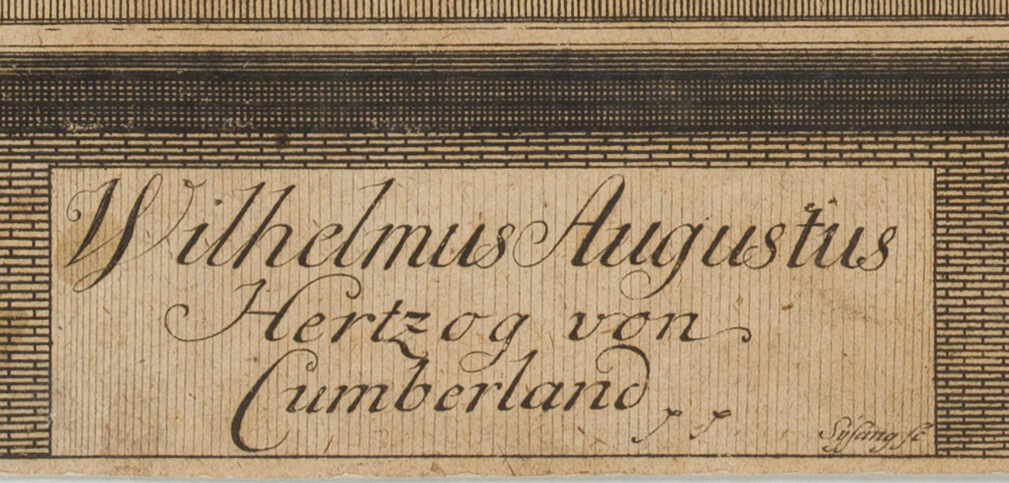 Wilhelmus Augustus
Hertzog von
Cumberland
Sysang sc